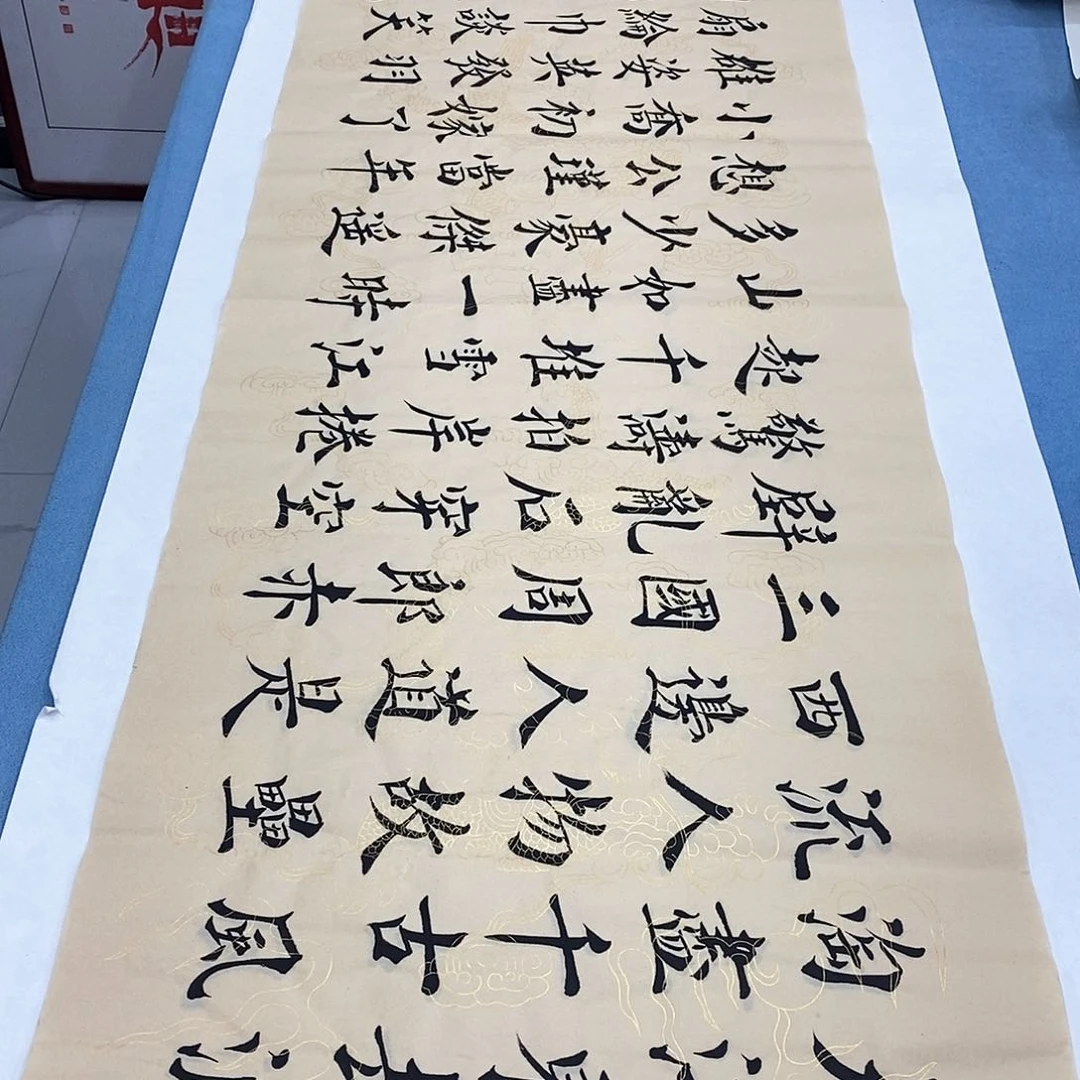 淘盡千古風
流人物故壘
西邊人道是
三國周郎赤
壁亂石穿空
驚濤拍岸捲
起千堆雪江
山如畫一時
多少豪傑遥
想公瑾當年
小喬初嫁了
雄姿英發羽
扇綸巾談笑